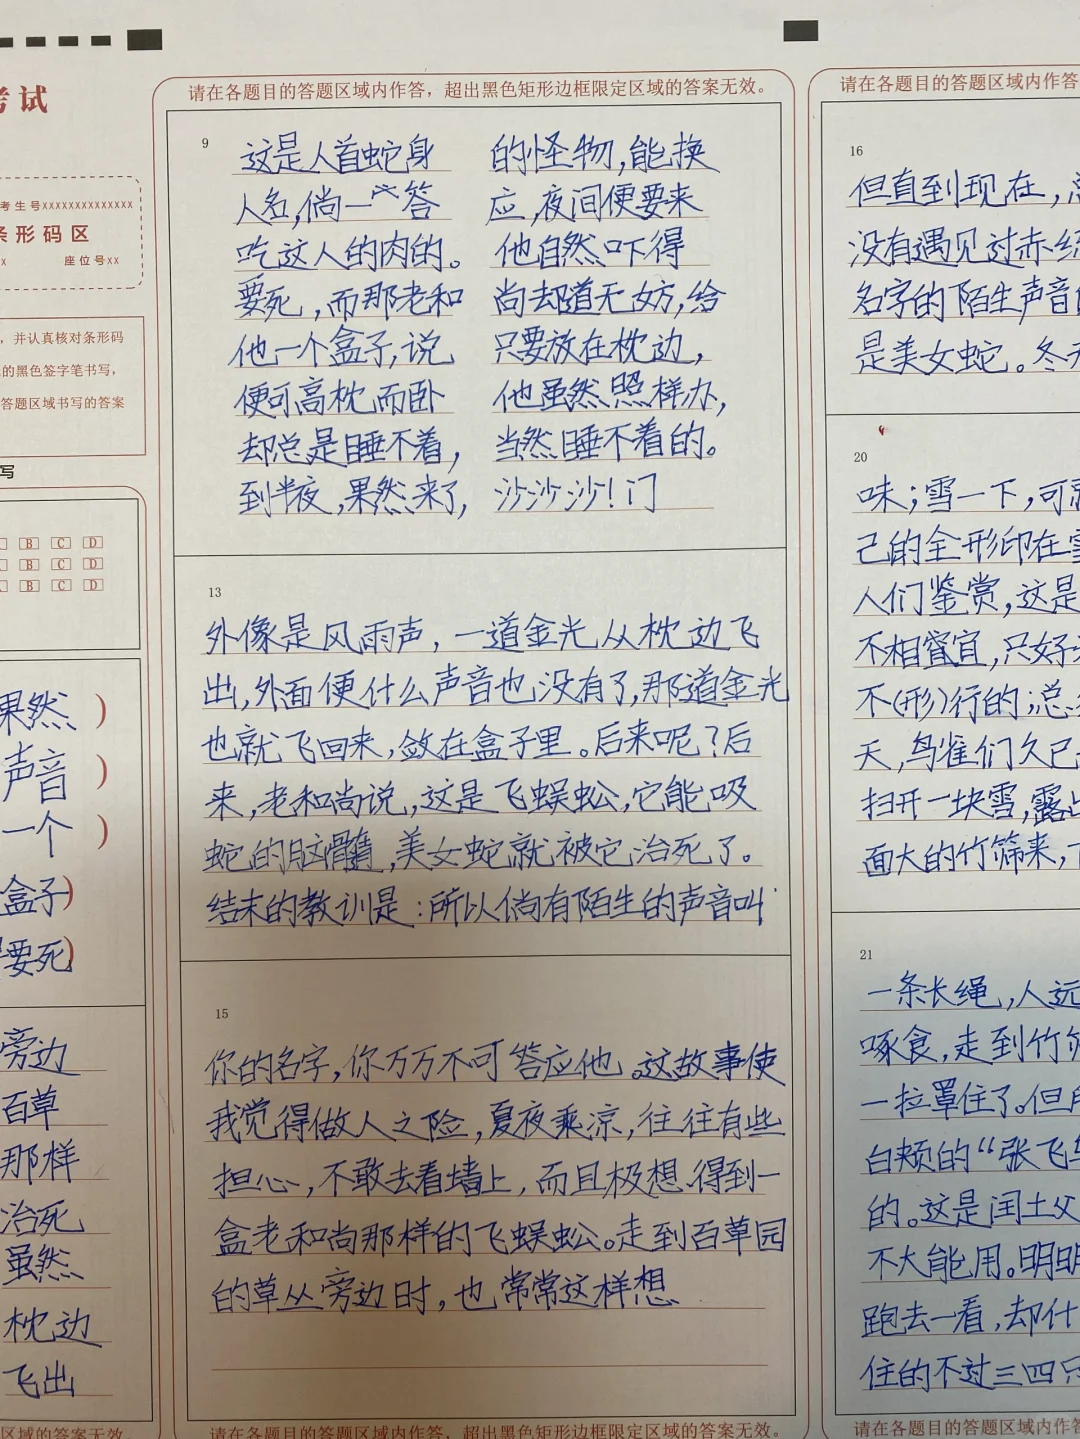 考试
考生号XXXXXXXXXXXXXX
条形码区
座位号XX
，并认真核对条形码
的黑色签字笔书写，
答题区域书写的答案
写
B C D
B C D
B C D
果然)
声音)
一个)
盒子)
要死)
旁边
百草
那样
治死
虽然
枕边
飞出
区域的答案无效。
请在各题目的答题区域内作答，超出黑色矩形边框限定区域的答案无效。
9
这是人首蛇身 的怪物,能换
人名,倘一答 应,夜间便要来
吃这人的肉的。 他自然吓得
要死,而那老和 尚却道无妨,给
他一个盒子,说 只要放在枕边,
便可高枕而卧 他虽然照样办,
却总是睡不着, 当然睡不着的。
到半夜,果然来了, 沙沙沙!门
13
外像是风雨声,一道金光从枕边飞
出,外面便什么声音也没有了,那道金光
也就飞回来,敛在盒子里。后来呢?后
来,老和尚说,这是飞蜈蚣,它能吸
蛇的脑髓,美女蛇就被它治死了。
结末的教训是:所以倘有陌生的声音叫
15
你的名字,你万万不可答应他。这故事使
我觉得做人之险,夏夜乘凉,往往有些
担心,不敢去看墙上,而且极想得到一
盒老和尚那样的飞蜈蚣。走到百草园
的草丛旁边时,也常常这样想
请在各题目的答题区域内作答，超出黑色矩形边框限定区域的答案无效。
请在各题目的答题区域内作答
16
但直到现在,
没有遇见过赤
名字的陌生声音
是美女蛇。冬
20
味;雪一下,可
己的全形印在
人们鉴赏,这是
不相宜,只好
不(形)行的;总
天,鸟雀们久已
扫开一块雪,露
面大的竹筛来,
21
一条长绳,人远
啄食,走到竹
一拉罩住了。但
白颊的“张飞
的。这是闰土父
不大能用。明明
跑去一看,却什
住的不过三四只
请在各题目的答题区域内作答